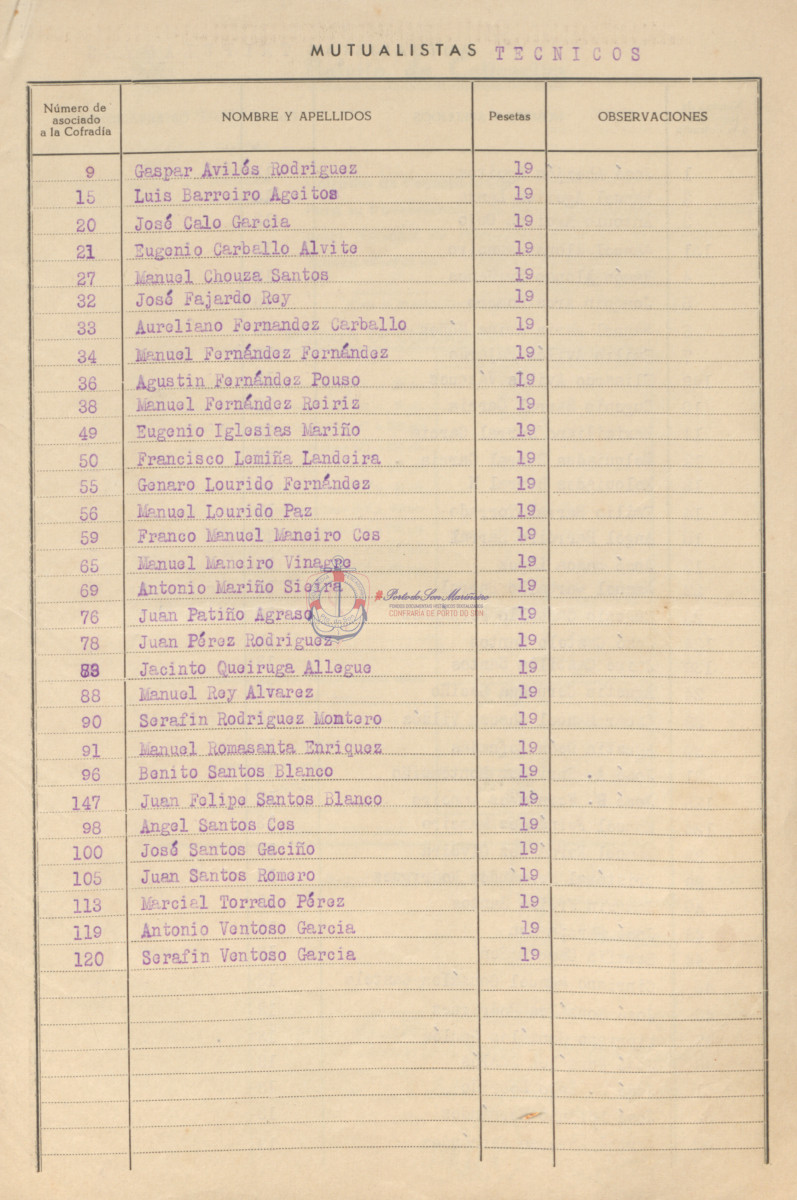 MUTUALISTAS TECNICOS
Número de asociado a la Cofradía NOMBRE Y APELLIDOS Pesetas OBSERVACIONES
9 Gaspar Avilés Rodriguez 19
15 Luis Barreiro Ageitos 19
20 José Calo Garcia 19
21 Eugenio Carballo Alvite 19
27 Manuel Chouza Santos 19
32 José Fajardo Rey 19
33 Aureliano Fernandez Carballo 19
34 Manuel Fernández Fernández 19
36 Agustin Fernández Pouso 19
38 Manuel Fernández Reiriz 19
49 Eugenio Iglesias Mariño 19
50 Francisco Lemiña Landeira 19
55 Genaro Lourido Fernández 19
56 Manuel Lourido Paz 19
59 Franco Manuel Maneiro Ces 19
65 Manuel Maneiro Vinagre 19
69 Antonio Mariño Sieira 19
Porto do Son Mariñeiro
CONFRARIA DE PORTO DO SON
76 Juan Patiño Agraso 19
78 Juan Pérez Rodriguez 19
83 Jacinto Queiruga Allegue 19
88 Manuel Rey Alvarez 19
90 Serafin Rodriguez Montero 19
91 Manuel Romasanta Enriquez 19
96 Benito Santos Blanco 19
147 Juan Felipe Santos Blanco 19
98 Angel Santos Ces 19
100 José Santos Gaciño 19
105 Juan Santos Romero 19
113 Marcial Torrado Pérez 19
119 Antonio Ventoso Garcia 19
120 Serafin Ventoso Garcia 19